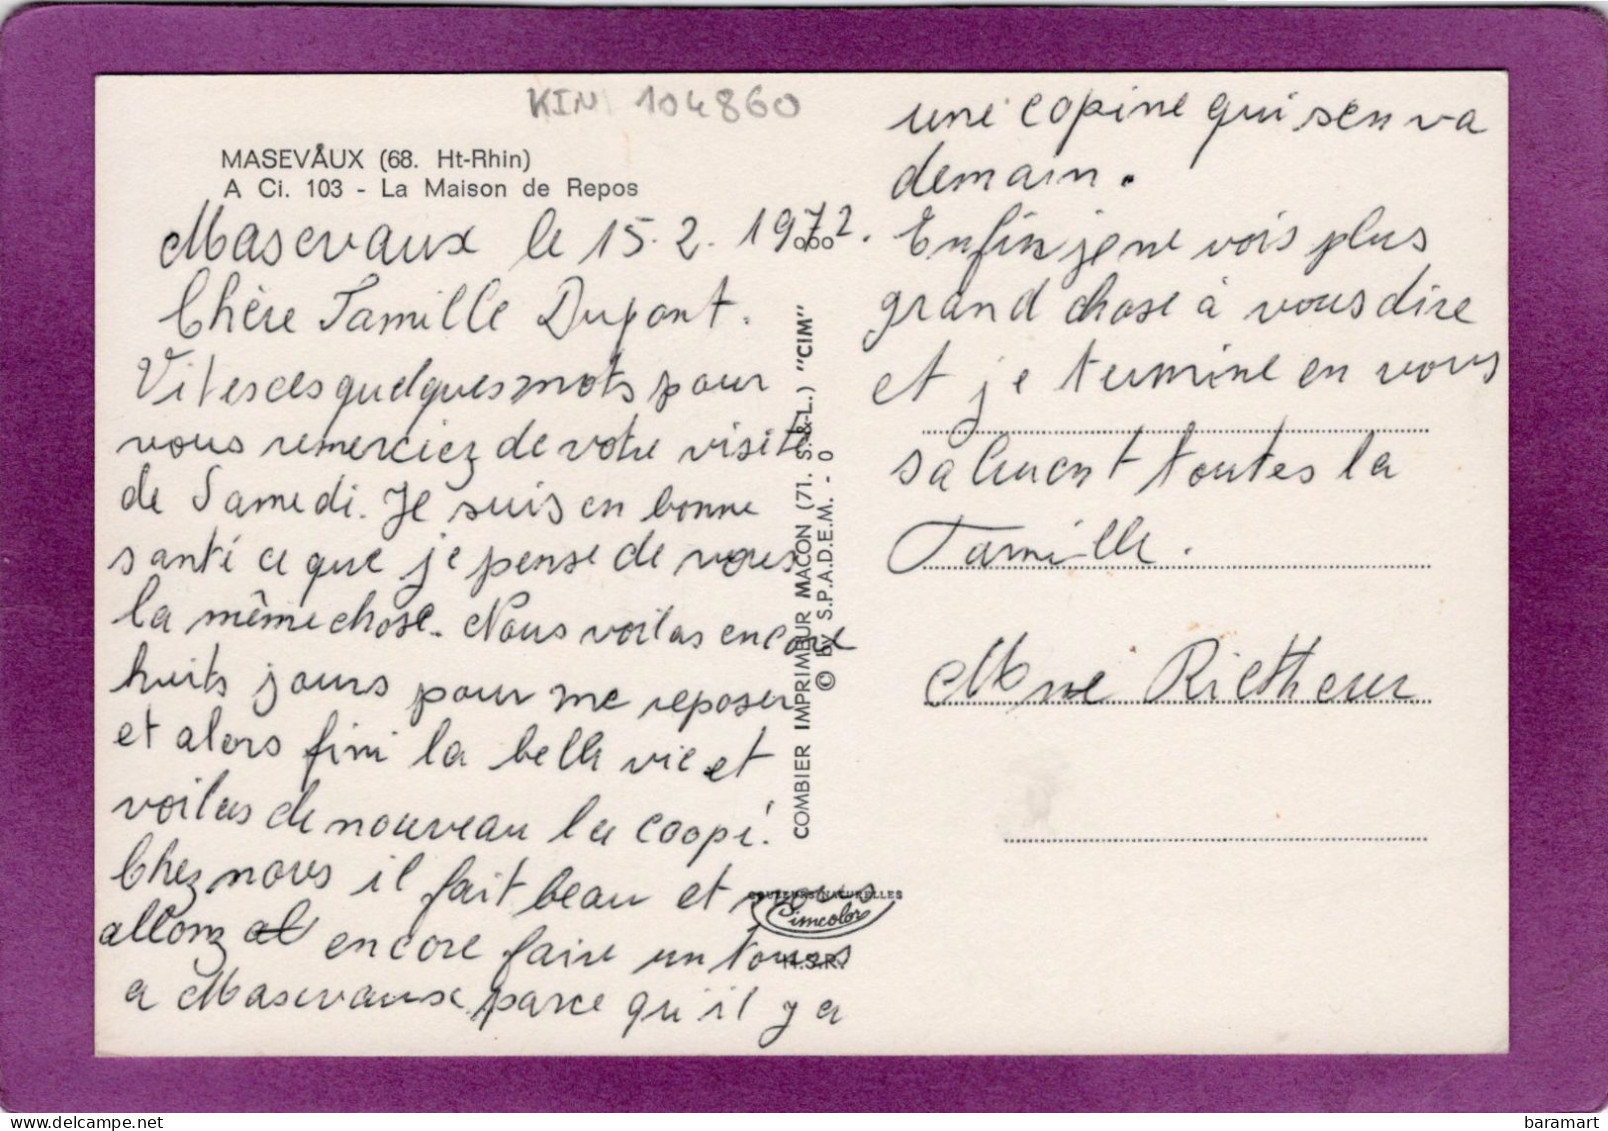 KIN 104860
MASEVAUX (68. Ht-Rhin)
A Ci. 103 - La Maison de Repos
Masevaux le 15.2.1972.
Chère Famille Dupont.
Vites ces quelques mots pour
vous remerciez de votre visite
de Samedi. Je suis en bonne
santé ce que je pense de vous
la même chose. Nous voilas encore
huits jours pour me reposer
et alors fini la belle vie et
voilas de nouveau la coopé.
Chez nous il fait beau et nous
allonz encore faire un tours
a Masevaux parce qu'il y a
COMBIER IMPRIMEUR MACON (71. S.-&-L.) "CIM"
© by S.P.A.D.E.M. - 0
COULEURS NATURELLES
Cimcolor
une copine qui s'en va
demain.
Enfin je ne vois plus
grand chose à vous dire
et je termine en vous
saluent toutes la
Famille.
Mme Rietheur
baramart